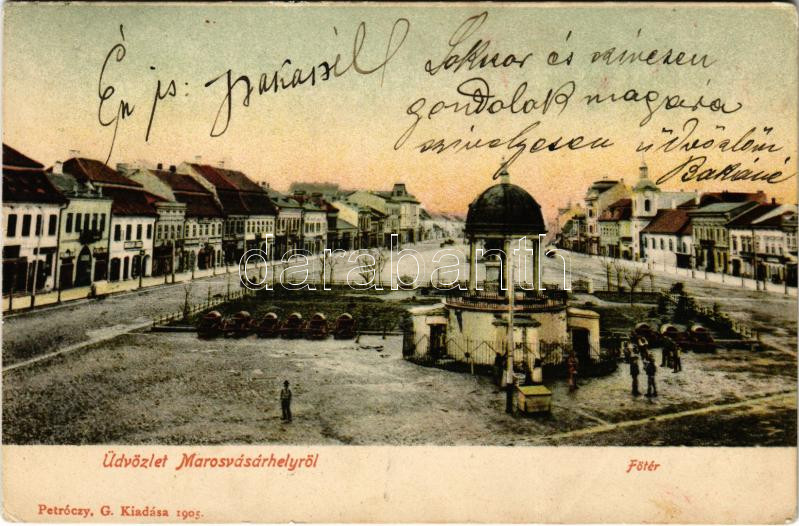 Én is:
Sokszor és szívesen
gondolok magára
szívélyesen üdvözlöm
Bakáné
darabanth.com
Üdvözlet Marosvásárhelyről
Főtér
Petróczy, G. Kiadása 1905.